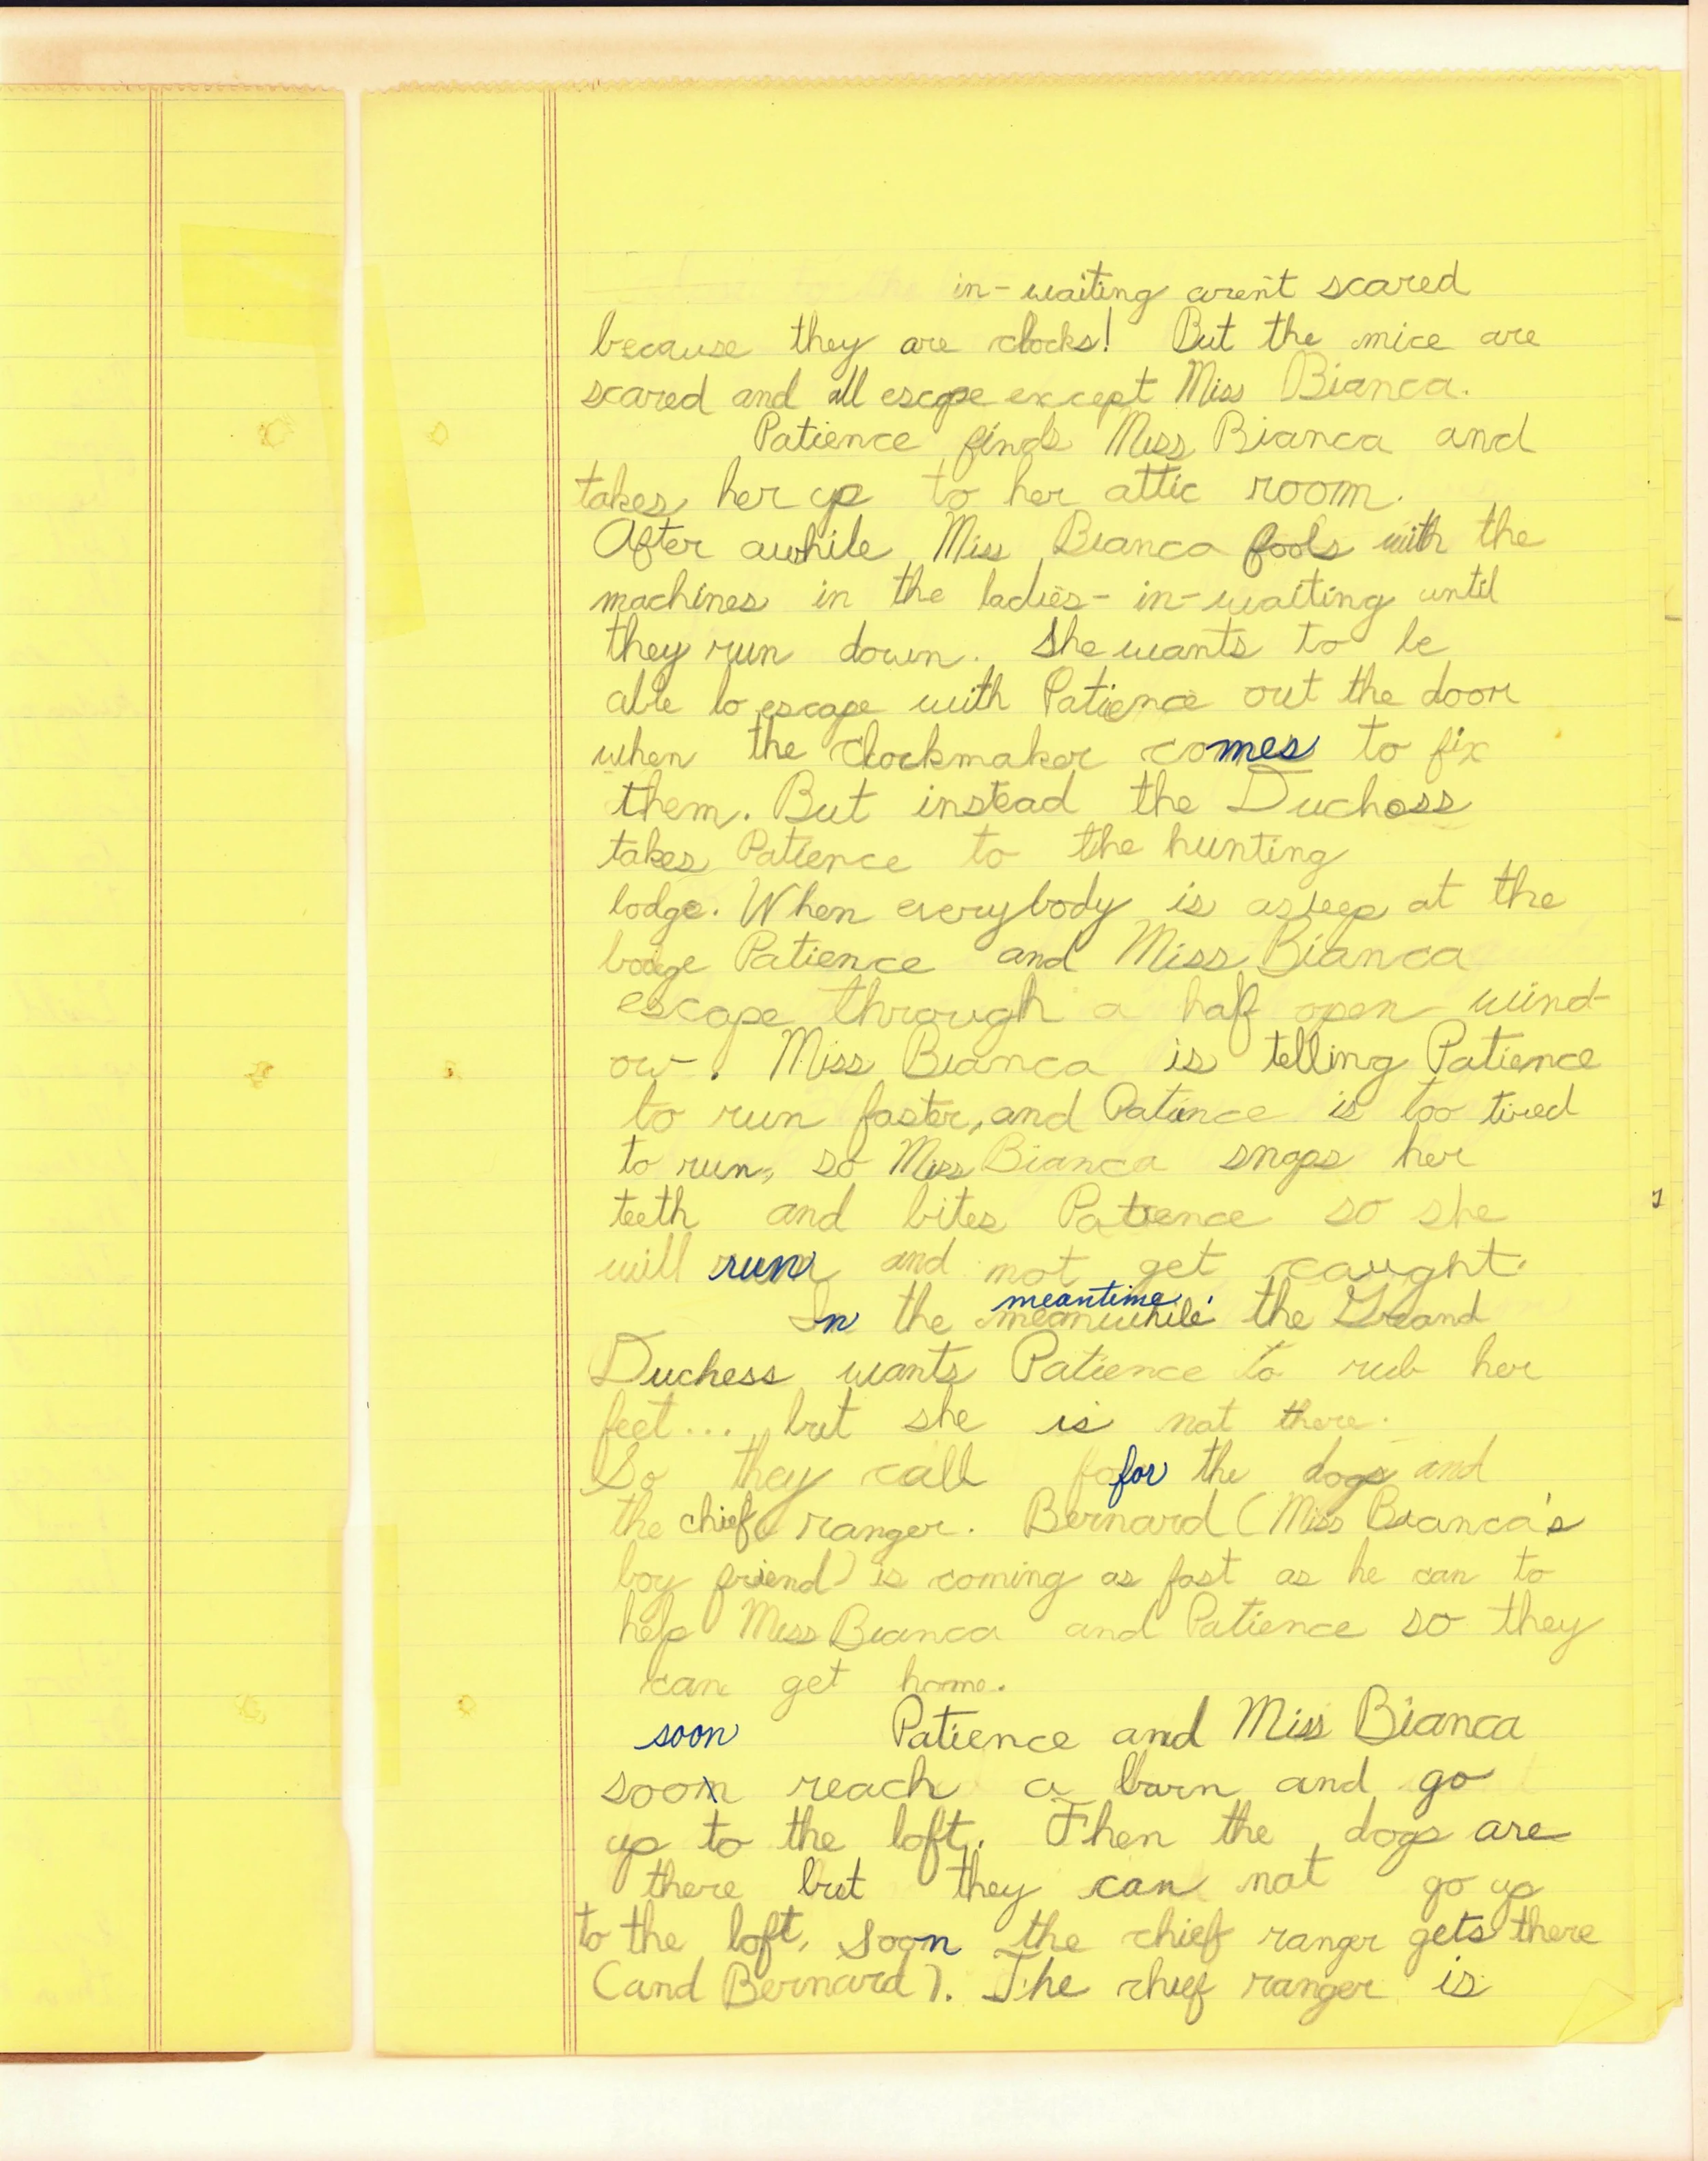 in-waiting aren't scared
because they are clocks! But the mice are
scared and all escape except Miss Bianca.
Patience finds Miss Bianca and
takes her up to her attic room.
After awhile Miss Bianca fools with the
machines in the ladies-in-waiting until
they run down. She wants to be
able to escape with Patience out the door
when the clockmaker comes to fix
them. But instead the Duchess
takes Patience to the hunting
lodge. When everybody is asleep at the
lodge Patience and Miss Bianca
escape through a half open wind-
ow. Miss Bianca is telling Patience
to run faster, and Patience is too tired
to run, so Miss Bianca snaps her
teeth and bites Patience so she
will run and not get caught.
meantime
In the meanwhile the Grand
Duchess wants Patience to rub her
feet... but she is not there.
So they call for the dogs and
the chief ranger. Bernard (Miss Bianca's
boy friend) is coming as fast as he can to
help Miss Bianca and Patience so they
can get home.
soon Patience and Miss Bianca
soon reach a barn and go
up to the loft. Then the dogs are
there but they can not go up
to the loft, soon the chief ranger gets there
(and Bernard). The chief ranger is